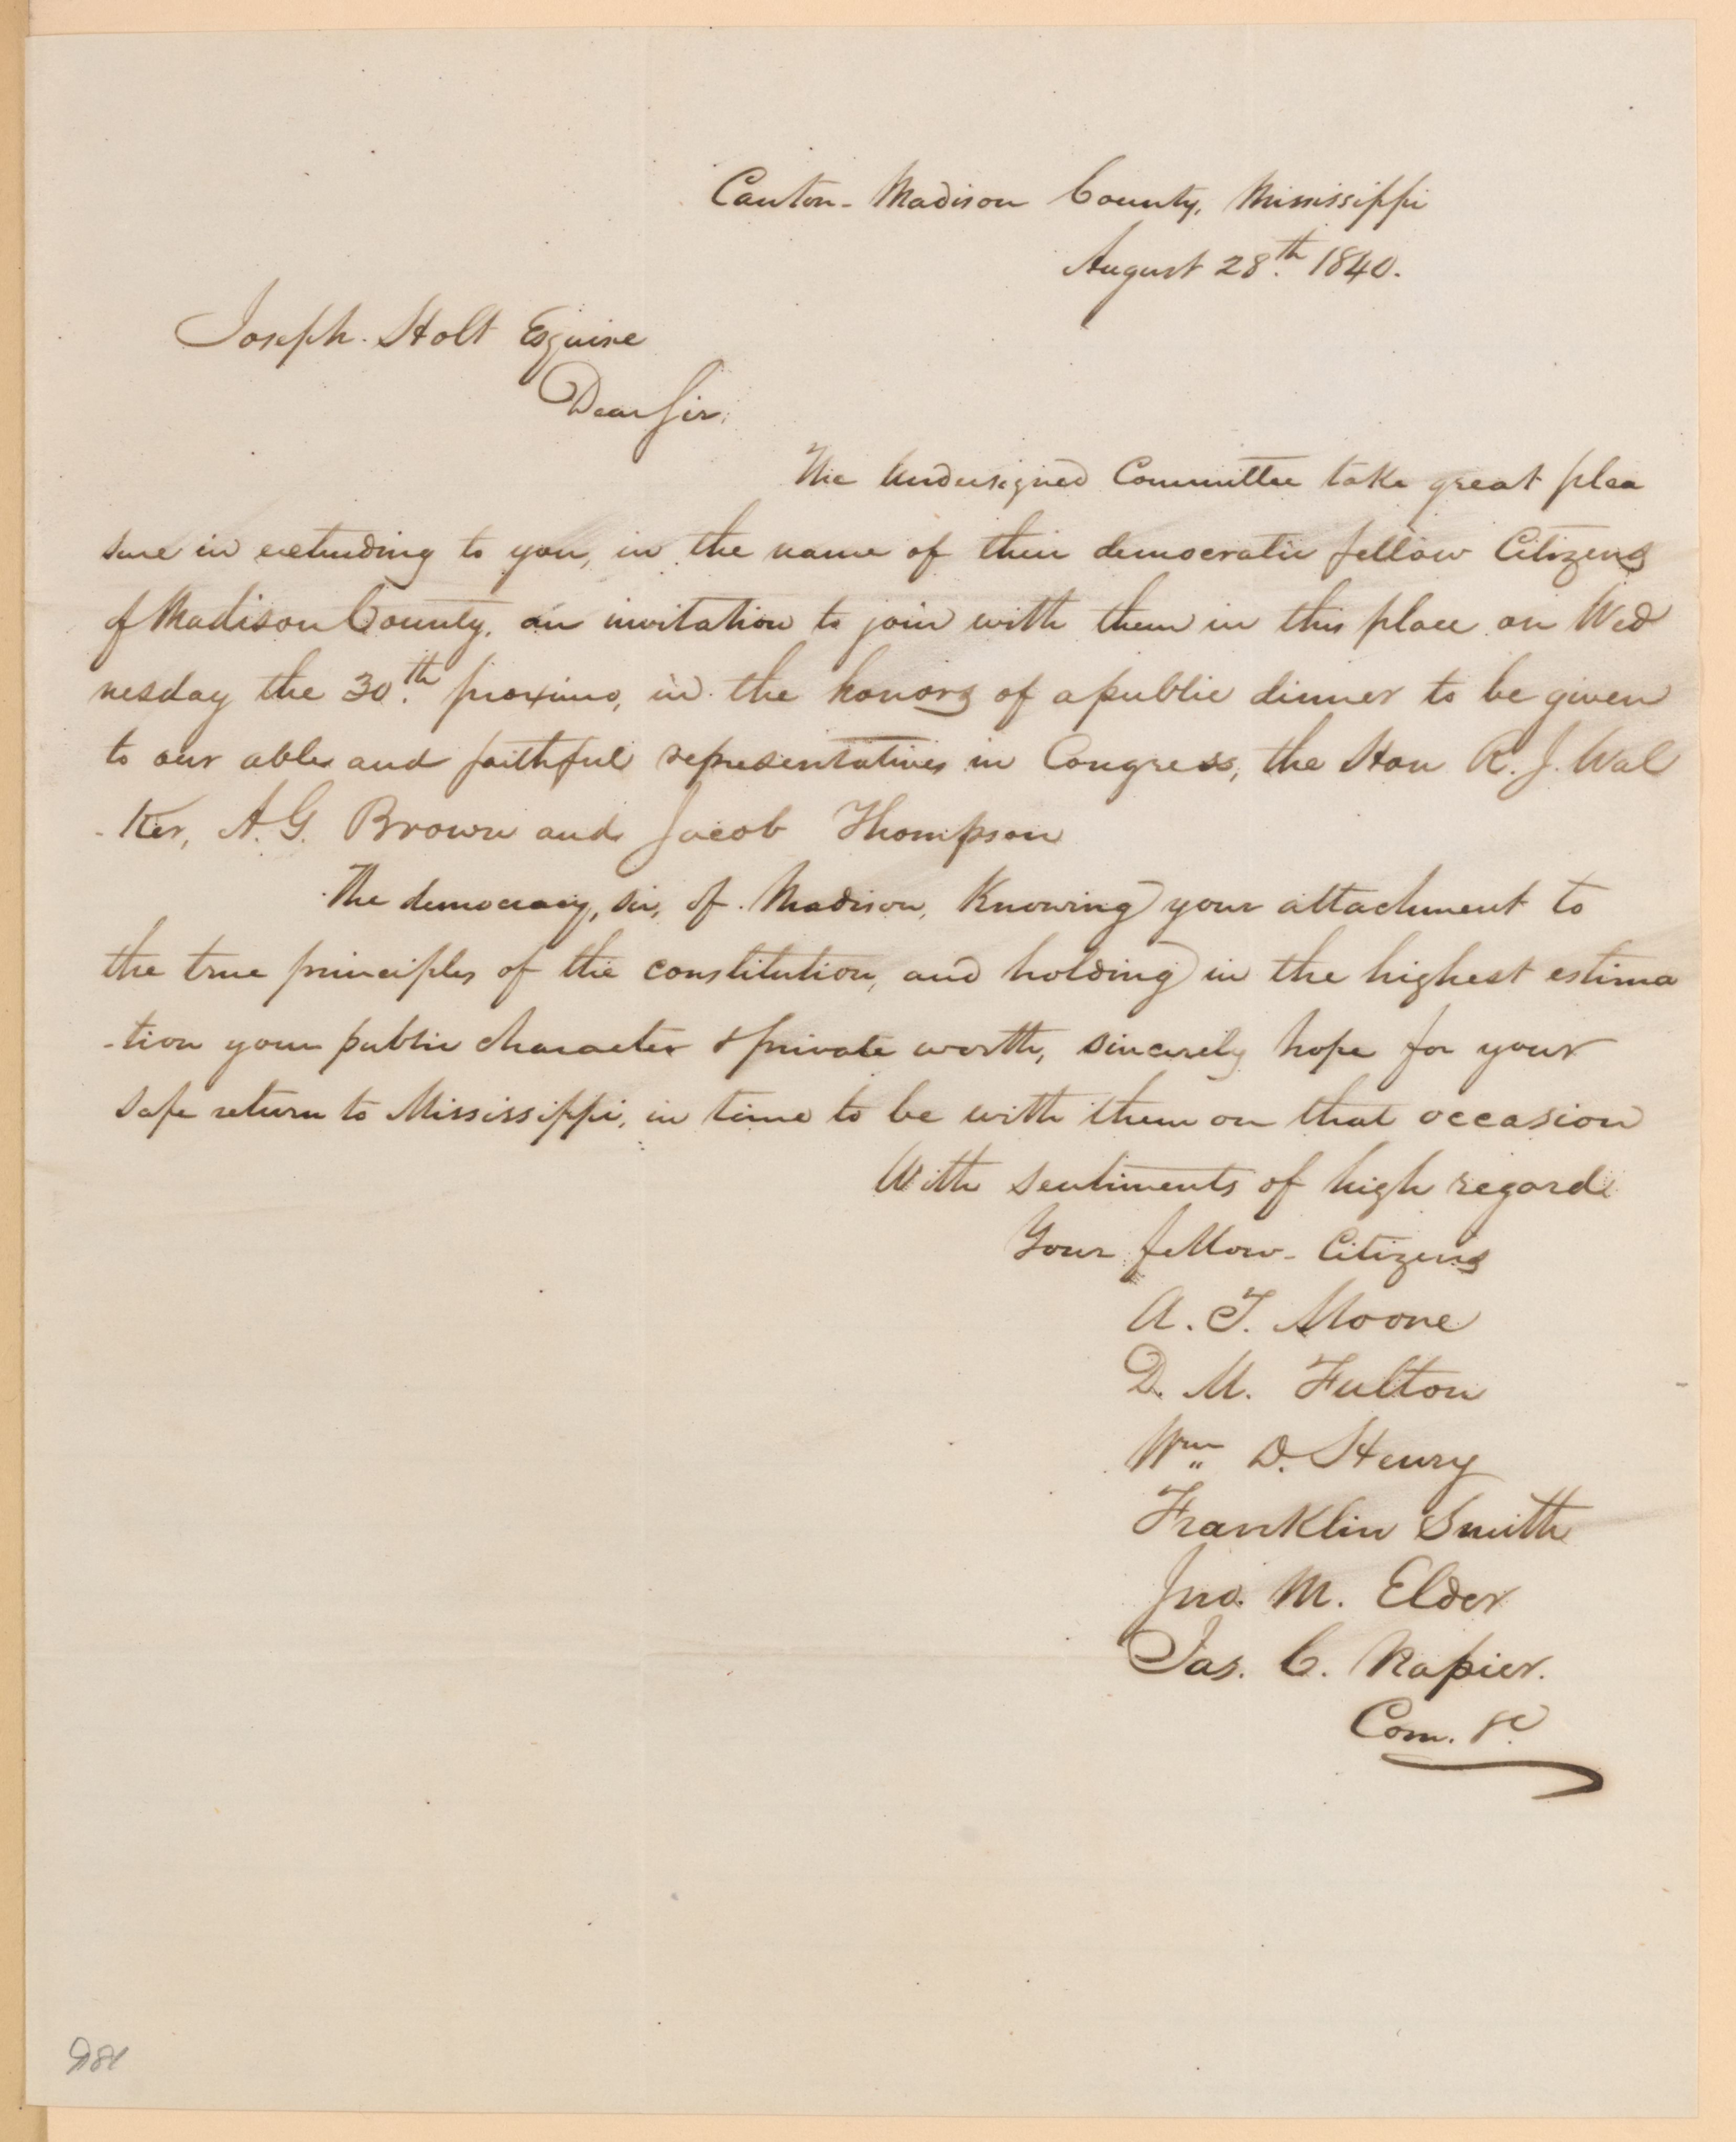 Canton- Madison County, Mississippi
August 28th 1840.
Joseph Holt Esquire
Dear Sir,
The Undersigned Committee take great plea
sure in extending to you, in the name of their democratic fellow Citizens
of Madison County, an invitation to join with them in this place on Wed
nesday the 30th proximo, in the honors of a public dinner to be given
to our able and faithful representatives in Congress, the Hon R. J. Wal
-ker, A. G. Brown and Jacob Thompson
The democracy, sir, of Madison, Knowing your attachment to
the true principles of the constitution, and holding in the highest estima
-tion your public character & private worth, sincerely hope for your
safe return to Mississippi, in time to be with them on that occasion
With sentiments of high regard
Your fellow-Citizens
A. T. Moore
D. M. Fulton
Wm D. Henry
Franklin Smith
Jno. M. Elder
Jas. C. Napier.
Com. &c